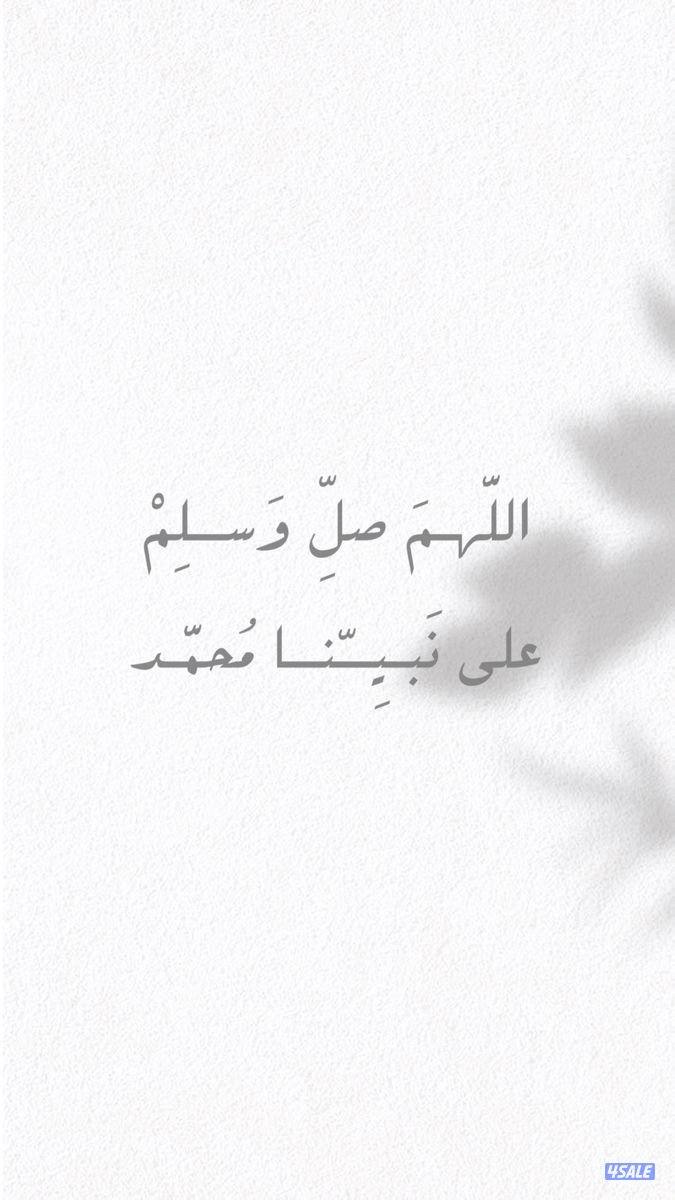 اللّهمَ صلِّ وَسلِمْ
على نَبيِّنا مُحمّد
4SALE